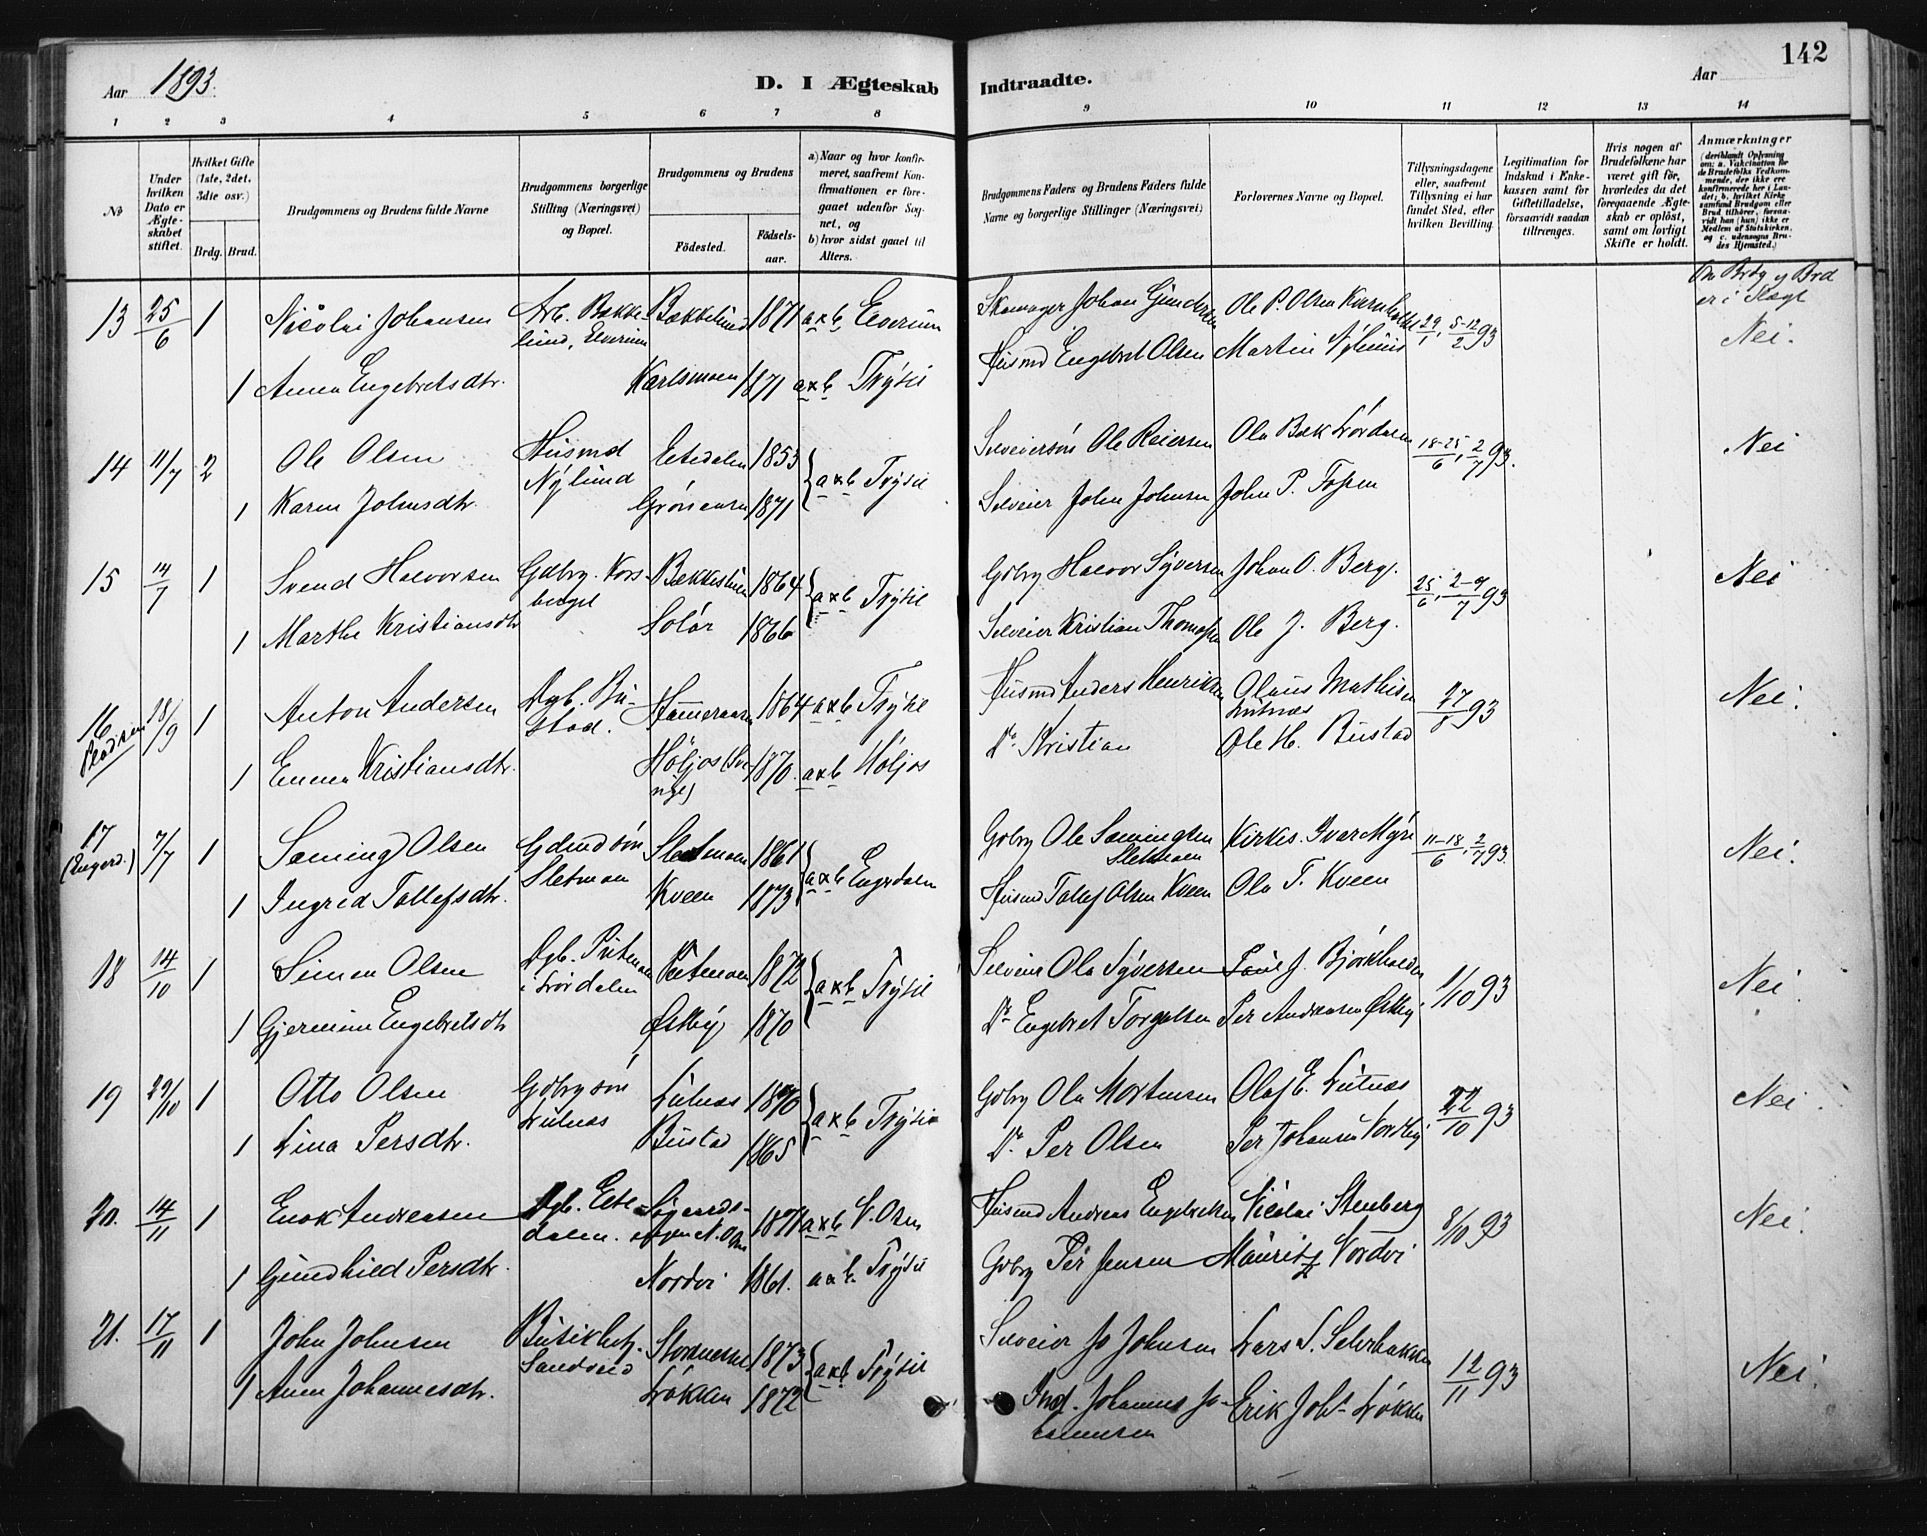 142
Aar 1893.
D. I Ægteskab Indtraadte.
Aar
1 2 3 4 5 6 7 8 9 10 11 12 13 14
No
Under hvilken Dato er Ægteskabet stiftet.
Hvilket Gifte (1ste, 2det, 3die osv.)
Brdg. Brud.
Brudgommens og Brudens fulde Navne
Brudgommens borgerlige Stilling (Næringsvei) og Bopæl.
Brudgommens og Brudens
Födested.
Födsels-aar.
a) Naar og hvor konfirmeret, saafremt Konfirmationen er foregaaet udenfor Sognet, og
b) hvor sidst gaaet til Alters.
Brudgommens Faders og Brudens Faders fulde Navne og borgerlige Stillinger (Næringsvei)
Forlovernes Navne og Bopæl.
Tillysningsdagene eller, saafremt Tillysning ei har fundet Sted, efter hvilken Bevilling.
Legitimation for Indskud i Enkekassen samt for Giftetilladelse, forsaavidt saadan tiltrænges.
Hvis nogen af Brudefolkene har været gift för, hvorledes da det foregaaende Ægteskab er oplöst, samt om lovligt Skifte er holdt.
Anmærkninger (deriblandt Oplysning om: a. Vakcination for de Brudefolks Vedkommende, der ikke ere konfirmerede her i Landet; b. hvilket Kirkesamfund Brudgom eller Brud tilhörer, forsaavidt han (hun) ikke er Medlem af Statskirken, og c. udensogns Brudes Hjemsted.)
Om Brdg og Brd er i Slægt
13 25/6 1 Nicolai Johansen Arb. Bække- Bækkelund 1871 a x b Elverum Skomager Johan Gundersen Ole P. Olsen 29/1, 5-12/2 93 Nei.
lund, Elverum
1 Anna Engebretsdtr. Karlsmoen 1871 a x b Trysil Husmd Engebret Olsen Martin Nylund
14 11/7 2 Ole Olsen Husmd Eltedalen 1853 a x b Trysil Selveiersøn Ole Reiersen Ola Bæk Lørdalen 18-25/6, 2/7 93. Nei
Nylund
1 Karen Johnsdtr. Grønensen 1871 Selveier John Johnsen John P. Fossen
15 14/7 1 Svend Halvorsen Gdbrg. Kors- 1864 a x b Trysil Gdbrg Halvor Syversen Johan O. Berg. 25/6, 2-9/7 93 Nei
berget
1 Marthe Kristiansdtr Solør 1866 Selveier Kristian Thomassen Ole J. Berg.
16 28/9 1 Anton Andersen Dgb. Bu- 1864 a x b Trysil Husmd Anders Henriksen Olaus Mathisen 27/8 93 Nei.
stad. Lutnæs
1 Emma Kristiansdtr. Höljos (Sve- 1870. a x b Höljos Do Kristian Ole H. Bustad
rige)
17 7/7 1 Sæming Olsen Gdmdsön Sletmoen 1861 a x b Engerdalen Gdbrg Ole Sæmingsen Kirkes. Ivar Myre 11-18/6, 2/7 93. Nei.
(Engerd.) Sletmoen Sletmoen
1 Ingrid Tollefsdtr. Kveen 1873 Husmd Tollef Olsen Kveen Ola T. Kveen
18 14/10 1 Simen Olsen Dgb. 1872 a x b Trysil Selveier Ola Syversen J. Björkholen 1/10 93 Nei.
i Lördalen
1 Engebretsdtr Østby 1870 Do Engebret Torgalsen Per Andreasen Østby
19 29/10 1 Otto Olsen Gdbrg sön Lutnæs 1870 a x b Trysil Gdbrg Ola Mortensen Olaf E. Lutnæs 22/10 93 Nei.
Lutnæs
1 Lina Persdtr. Bustad 1865 Do Per Olsen Per Johansen Nordby
20. 14/11 1 Enok Andreasen Dgb. Elte- 1871 a x b N. Osen Husmd Andreas Engebretsen Nicolai Stenberg 8/10 93 Nei.
dalen.
1 Gundhild Persdtr. Nordvi 1861. a x b. Trysil Gdbrg Per Jensen Mauritz Nordvi
21. 17/11 1 John Johnsen 1873 a x b Trysil Selveier Jo Johnsen Lars S. 12/11 93 Nei.
Sandvid
1 Anne Johannesdtr. Løkken 1872 Ind. Johannes Jo- Erik Johs Løkken
hannesen